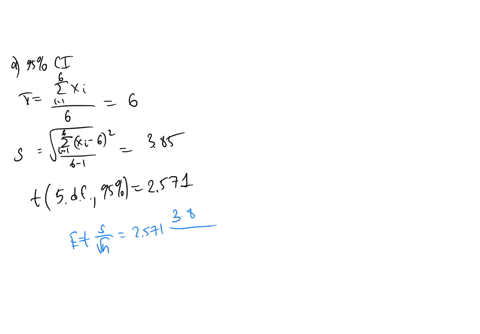 a) 95% CI
x̄ = Σ_{i=1}^{6} xi / 6 = 6
s = √(Σ_{i=1}^{6} (xi-6)² / 6-1) = 3.85
t(5. d.f., 95%) = 2.571
E = t s/√n = 2.571 3.8